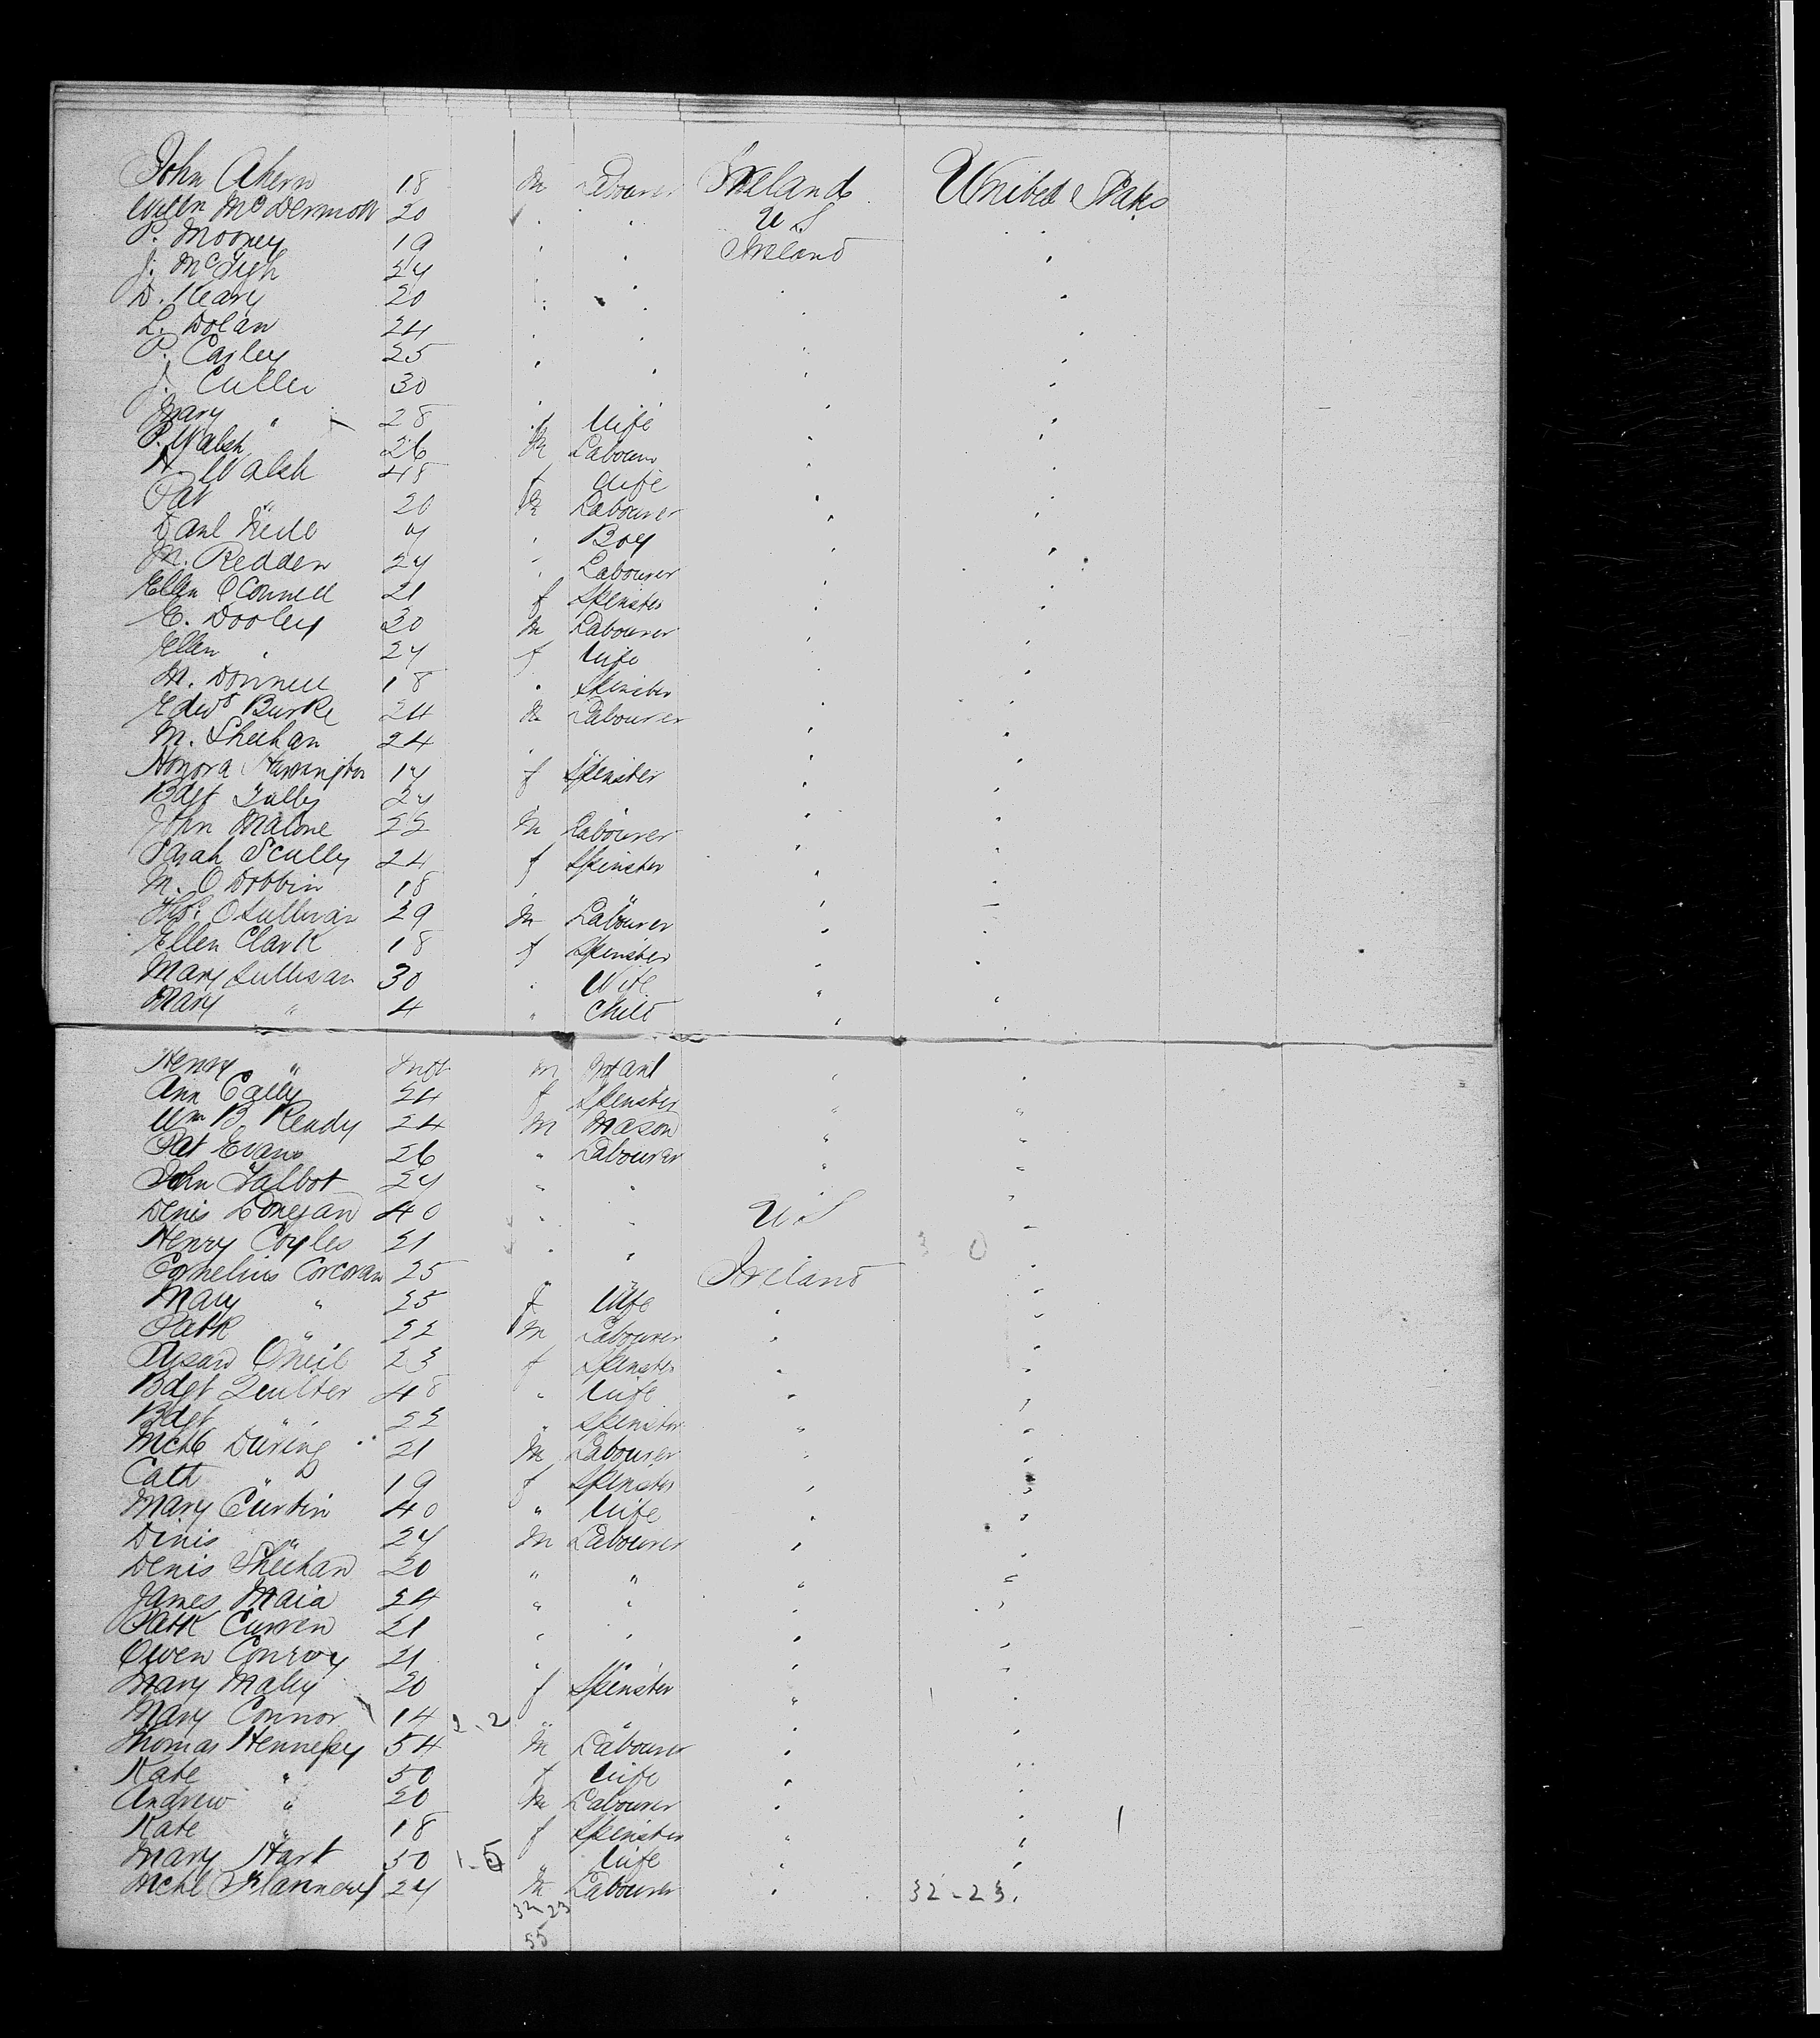 John Ahern 18 m Labourer Ireland United States
Willm McDermott 20 " " U S "
P. Mooney 19 " " Ireland "
J. McTigh 24 " " " "
D. Keary 20 " " " "
L. Dolan 24 " " " "
P. Cayley 25 " " " "
J. Cullen 30 " " " "
Mary " 28 f Wife " "
P. Walsh 26 m Labourer " "
Walsh 48 f Wife " "
Pat " 20 m Labourer " "
Danl " Boy " "
M. Redden 24 " Labourer " "
Ellen OConnell 21 f Spinster " "
E. Dooley 30 m Labourer " "
Ellen " 24 f Wife " "
M. Donnell 18 " Spinster " "
Edwd Burke 24 m Labourer " "
M. Sheehan 24 " " " "
Honora Harrington 17 f Spinster " "
Bdgt Tully 24 " " " "
John Malone 22 m Labourer " "
Sarah Scully 24 f Spinster " "
M. O Dobbin 18 " " " "
Thos. OSullivan 29 m Labourer " "
Ellen Clark 18 f Spinster " "
Mary Sullivan 30 " Wife " "
Mary " 4 " Child " "
Henry " Inft m Infant " "
Ann Cally 24 f Spinster " "
Wm B. Ready 24 m Mason " "
Pat Evans 26 " Labourer " "
John Talbot 24 " " " "
Denis Donegan 40 " " U S "
Henry Coyles 21 " " 3 0
Cornelius Corcoran 25 " " Ireland "
Mary " 25 f Wife " "
Patk " 22 m Labourer " "
Susan ONeil 23 f Spinster " "
Bdgt Quilter 48 " Wife " "
Bdgt " 22 " Spinster " "
Michl During 21 m Labourer " "
Cath " 19 f Spinster " "
Mary Curtin 40 " Wife " "
Dinis " 24 m Labourer " "
Denis Sheehan 20 " " " "
James Maia 24 " " " "
Patk Curren 21 " " " "
Owen Conroy 21 " " " "
Mary Maley 20 f Spinster " "
Mary Connor 14 2-2 " " " "
Thomas Hennessy 54 m Labourer " "
Kate " 50 f Wife " "
Andrew " 20 m Labourer " "
Kate " 18 f Spinster " "
Mary Hart 50 1-5 " Wife " "
Michl Flannery 24 m Labourer " 32-23.
32 23
55